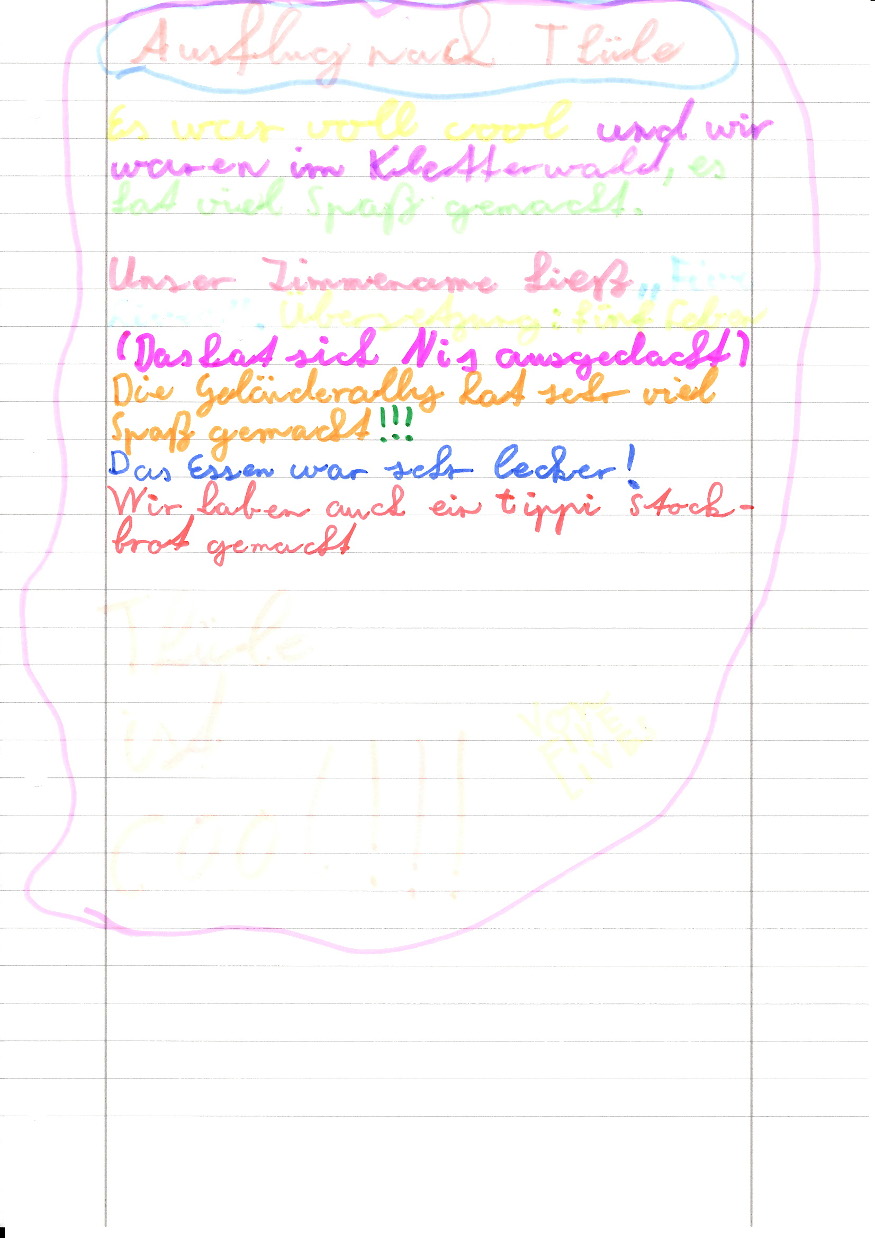 Ausflug nach Thüle
Es war voll cool und wir
waren im Kletterwald, es
hat viel Spaß gemacht.
Unser Zimmename hieß „
Übersetzung: Fünf Leben
(Das hat sich Nis ausgedacht)
Die Geländerally hat sehr viel
Spaß gemacht!!!
Das Essen war sehr lecker!
Wir haben auch ein tippi Stock-
brot gemacht
Thüle
ist
cool!!!
FIVE